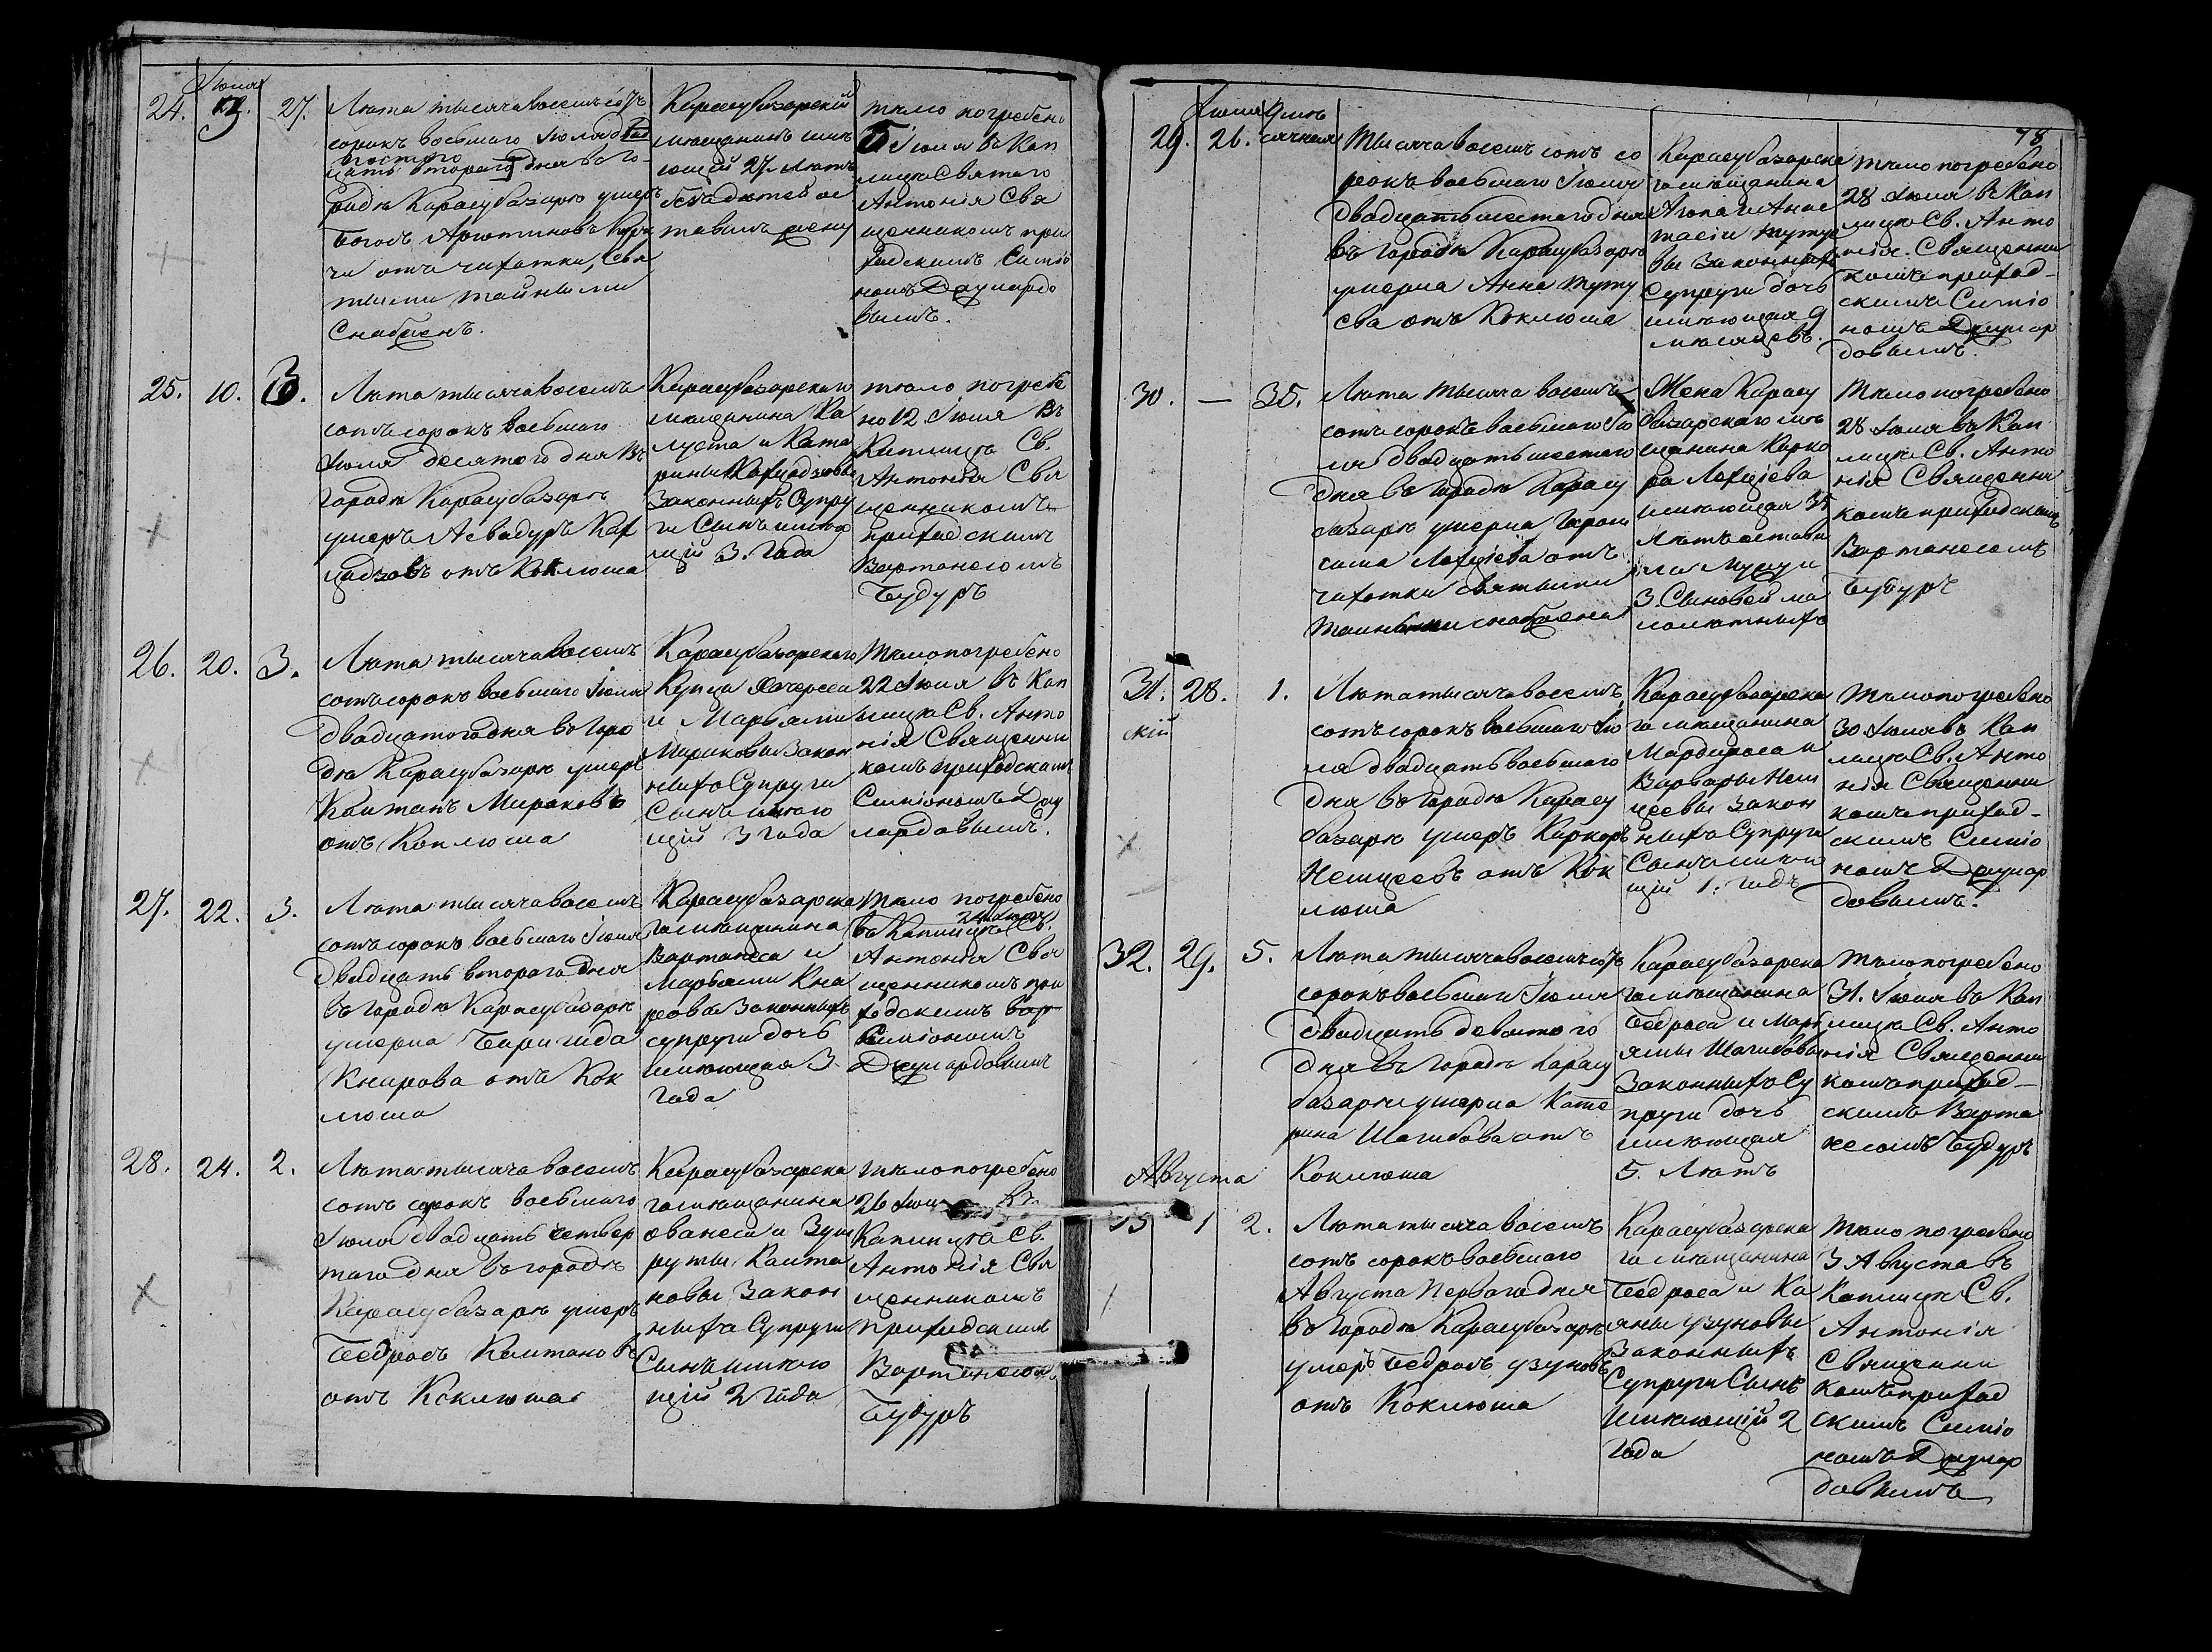 Іюля
24. 3. 27. Лѣта тысяча восемь сотъ
сорокъ восьмаго Іюля двад
цать втораго дня въ го-
родѣ Карасубазарѣ умеръ
Богосъ Арютиновъ
отъ чахотки, Свя
тыми тайнами
Снабженъ.
Карасубазарскій
мѣщанинъ имѣ
ющій 27 Лѣтъ
бездѣтей ос
тавилъ жену
тѣло погребено
5 Іюля въ Кап
лицѣ Святаго
Антонія Свя
щенникомъ при
ходскимъ Симіо
номъ Джулардо
вымъ.
25. 10. 3. Лѣта тысяча восемь
сотъ сорокъ восьмаго
Іюля десятого дня въ
городѣ Карасубазарѣ
умеръ Асвадуръ Каф
отъ Коклюша
Карасубазарскаго
мѣщанина Ка
луста и Ката
рины
Законныхъ Супру
ги Сынъ имѣю
щій 3. Года
тѣло погребе
но 12 Іюля Въ
Каплицѣ Св.
Антонія Свя
щенникомъ
приходскимъ
Вартанесомъ
Будуръ
26. 20. 3. Лѣта тысяча восемь
сотъ сорокъ восьмаго Іюля
двадцатого дня въ Горо
дѣ Карасубазарѣ умеръ
Каитанъ Мираковъ
отъ Коклюша
Карасубазарскаго
Купца
и Марьями
Мираковы Закон
ныхъ Супруги
Сынъ имѣю
щій 3 Года
Тѣло погребено
22 Іюля въ Кап
лицѣ Св. Анто
нія Священни
комъ приходскимъ
Симіономъ Джу
лардовымъ.
27. 22. 3. Лѣта тысяча восемь
сотъ сорокъ восьмаго Іюля
двадцать втораго дня
въ городѣ Карасубазарѣ
умерла
Кнарова отъ Кок
люша
Карасубазарска
го мѣщанина
Вартанеса и
Марьями Кна
ровы Законныхъ
супруги дочь
имѣющая 3.
Года
Тѣло погребено
въ Каплицѣ Св.
Антонія Свя
щенникомъ при
ходскимъ Вар
Симіономъ
Джулардовымъ
28. 24. 2. Лѣта тысяча восемь
сотъ сорокъ восьмаго
Іюля двадцать четвер
таго дня въ городѣ
Карасубазарѣ умеръ
Бедросъ Каитановъ
отъ Коклюша
Карасубазарска
го мѣщанина
Ованеса и Зум
руты Каита
новы Закон
ныхъ Супруги
Сынъ имѣю
щій 2 Года
Тѣло погребено
26 Іюля въ
Каплицѣ Св.
Антонія Свя
щенникомъ
Приходскимъ
Вартанесомъ
Будуръ
78
Іюля 9 мѣ
29. 26. сячная Тысяча восемь сотъ со
рокъ восьмаго Іюля
двадцать шестаго дня
въ Городѣ Карасубазарѣ
умерла Анна Туту
ева отъ Коклюша
Карасубазарска
го мѣщанина
Агопа и Анас
тасіи Тутуе
вы Законныхъ
Супруги дочь
имѣющая 9
мѣсяцевъ.
Тѣло погребено
28 Іюля въ Кап
лицѣ Св. Анто
нія. Священни
комъ приход-
скимъ Симіо
номъ Джулар
довымъ.
30. — 35. Лѣта тысяча восемь
сотъ сорокъ восьмаго Ію
ля двадцать шестаго
дня въ Городѣ Карасу
базарѣ умерла
отъ
чахотки святыми
Тайнами снабжена
Жена Карасу
базарскаго мѣ
щанина Карко
ра
имѣющая 35
Лѣтъ остави
ла Мужа и
3. Сыновей ма
лолѣтныхъ
Тѣло погребено
28 Іюля въ Кап
лицѣ Св. Анто
нія Священни
комъ приходскимъ
Вартанесомъ
Будуръ
31. 28. 1. Лѣта тысяча восемь
скій
сотъ сорокъ восьмаго Ію
ля двадцать восьмаго
дня въ Городѣ Карасу
базарѣ умеръ Киркоръ
Немцевъ отъ Кок
люша
Карасубазарска
го мѣщанина
Мардироса и
Варвары Нем
цевы Закон
ныхъ Супруги
Сынъ имѣю
щій 1. Годъ
Тѣло погребено
30 Іюля въ Кап
лицѣ Св. Анто
нія Священни
комъ приход-
скимъ Симіо
номъ Джулар
довымъ.
32. 29. 5. Лѣта тысяча восемь сотъ
сорокъ восьмаго Іюля
двадцать девятого
дня въ Городѣ Карасу
базарѣ умерла Кате
рина Шагибова отъ
Коклюша
Карасубазарска
го мѣщанина
Бедроса и Марь
ямы Шагибовы
Законныхъ Су
пруги дочь
имѣющая
5. Лѣтъ
Тѣло погребено
31. Іюля въ Кап
лицѣ Св. Анто
нія Священни
комъ приход-
скимъ Варта
несомъ Будуръ
Августа
33 1 2. Лѣта тысяча восемь
сотъ сорокъ восьмаго
Августа Перваго дня
въ Городѣ Карасубазарѣ
умеръ Бедросъ Узуновъ
отъ Коклюша
Карасубазарска
го мѣщанина
Бедроса и Ка
яны Узуновы
Законныхъ
Супруги Сынъ
Имѣющій 2
Года
Тѣло погребено
3 Августа въ
Каплицѣ Св.
Антонія
Священни
комъ приход
скимъ Симіо
номъ Джулар
довымъ